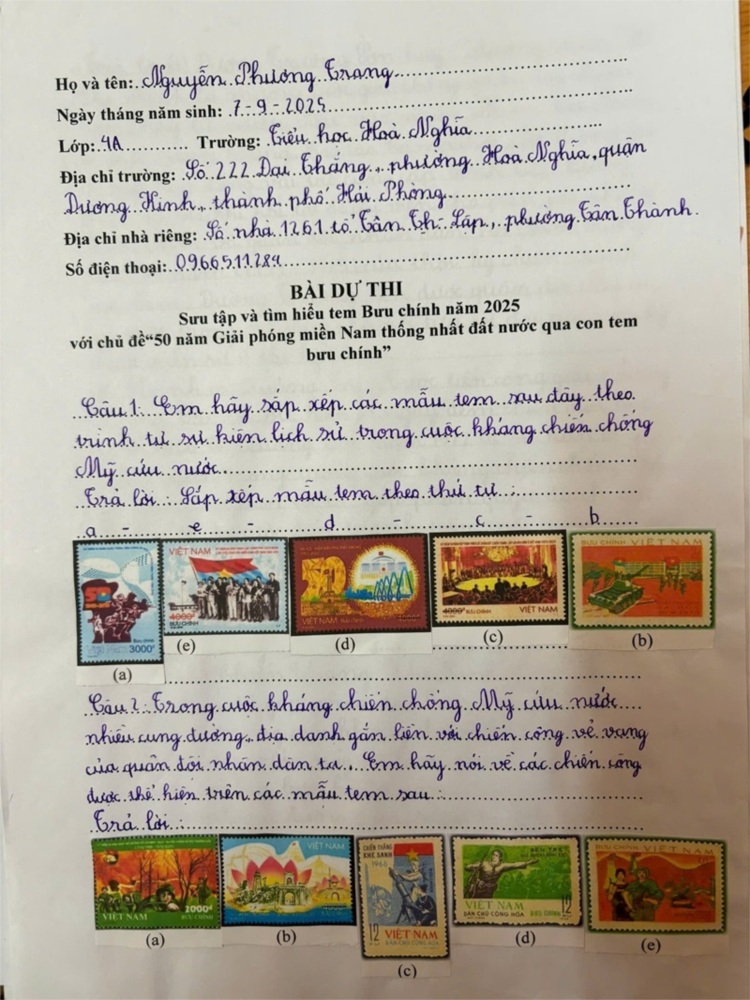 Họ và tên: Nguyễn Phương Trang
Ngày tháng năm sinh: 7-9-2025
Lớp: 4A Trường: Tiểu học Hoà Nghĩa
Địa chỉ trường: Số 222 Đại Thắng, phường Hoà Nghĩa, quận
Dương Kinh, thành phố Hải Phòng
Địa chỉ nhà riêng: Số nhà 1261 tổ Tân Thị Lập, phường Tân Thành
Số điện thoại: 0966511284
BÀI DỰ THI
Sưu tập và tìm hiểu tem Bưu chính năm 2025
với chủ đề“50 năm Giải phóng miền Nam thống nhất đất nước qua con tem
bưu chính”
Câu 1. Em hãy sắp xếp các mẫu tem sau đây theo
trình tự sự kiện lịch sử trong cuộc kháng chiến chống
Mỹ cứu nước
Trả lời: Sắp xếp mẫu tem theo thứ tự:
a - e - d - c - b
BƯU CHÍNH
3000đ
VIỆT NAM
4000đ BƯU CHÍNH
VIỆT NAM
4000đ BƯU CHÍNH VIỆT NAM
BƯU CHÍNH VIỆT NAM
(a) (e) (d) (c) (b)
Câu 2. Trong cuộc kháng chiến chống Mỹ cứu nước
nhiều cung đường, địa danh gắn liền với chiến công vẻ vang
của quân đội nhân dân ta. Em hãy nói về các chiến công
được thể hiện trên các mẫu tem sau:
Trả lời:
VIỆT NAM 2000đ
BƯU CHÍNH
VIỆT NAM
CHIẾN THẮNG
KHE SANH
1968
12 VIỆT NAM
DÂN CHỦ CỘNG HÒA
BẾN TRE
VIỆT NAM
DÂN CHỦ CỘNG HÒA BƯU CHÍNH 12
BƯU CHÍNH VIỆT NAM
(a) (b) (c) (d) (e)